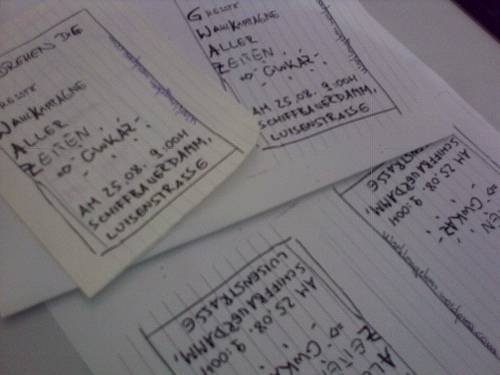 DREHEN DIE
GRÖSSTE
WAHLKAMPAGNE
ALLER
ZEITEN
=> GWKAZ
AM 25.08. 9:00H
SCHIFFBAUERDAMM,
LUISENSTRASSE
GRÖSSTE
WAHLKAMPAGNE
ALLER
ZEITEN
=> GWKAZ
AM 25.08. 9:00H
SCHIFFBAUERDAMM,
LUISENSTRASSE
EN
GWKAZ
AM 25.08. 9:00H
SCHIFFBAUERDAMM,
LUISENSTRASSE
ALLE
ZEITEN
=> GWKAZ
AM 25.08. 9:00H
SCHIFFBAUERDAMM,
LUISENSTRASSE